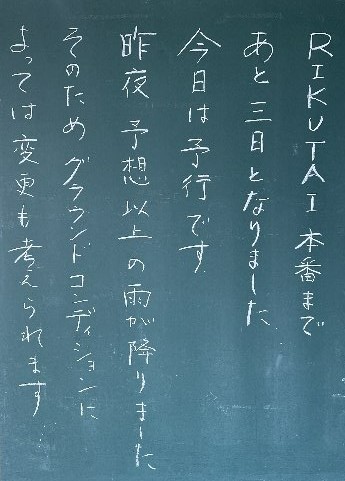 RIKUTAI本番まで
あと三日となりました
今日は予行です
昨夜予想以上の雨が降りました
そのためグラウンドコンディションに
よっては変更も考えられます